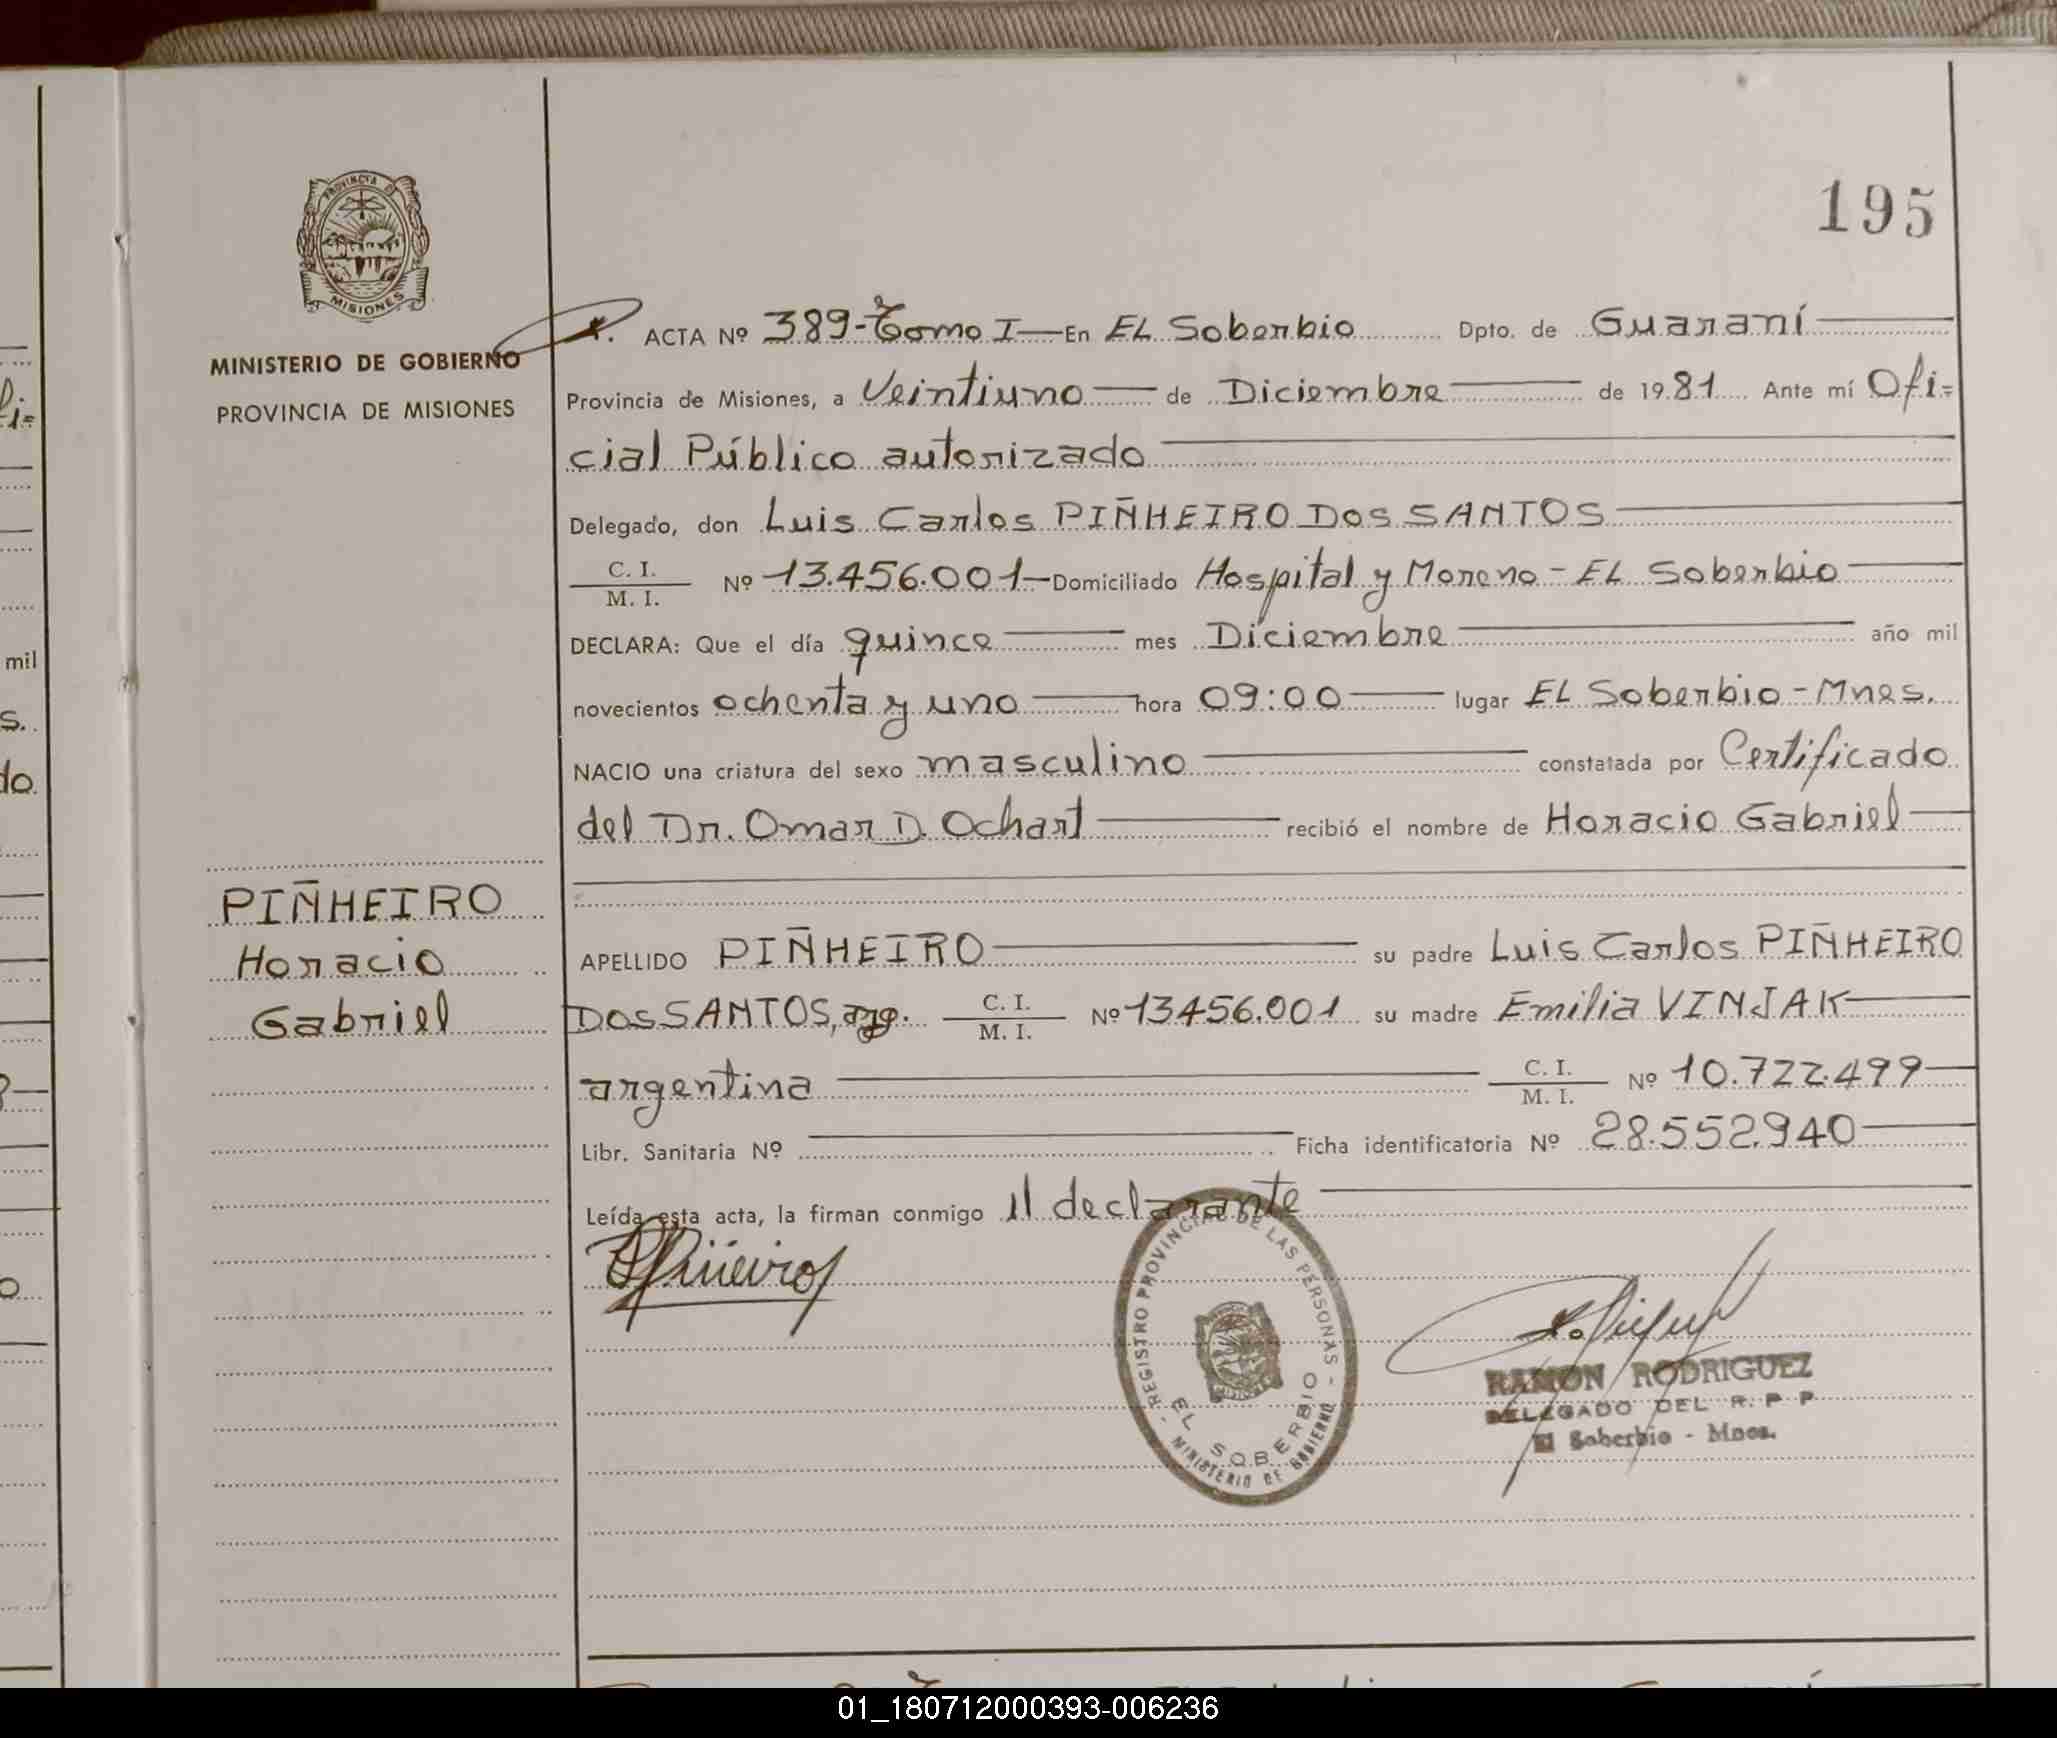 PROVINCIA DE
MISIONES
MINISTERIO DE GOBIERNO
PROVINCIA DE MISIONES
195
ACTA Nº 389-Tomo I—En EL Soberbio Dpto. de Guaraní
Provincia de Misiones, a Veintiuno de Diciembre de 1981 Ante mí Ofi=
cial Público autorizado
Delegado, don Luis Carlos PIÑHEIRO DOS SANTOS
C. I.
M. I. Nº 13.456.001—Domiciliado Hospital y Moreno - EL Soberbio
DECLARA: Que el día quince mes Diciembre año mil
novecientos ochenta y uno hora 09:00 lugar EL Soberbio - Mnes.
NACIO una criatura del sexo masculino constatada por Certificado
del Dr. Omar D. Ochart recibió el nombre de Horacio Gabriel
PIÑHEIRO
Horacio
Gabriel
APELLIDO PIÑHEIRO su padre Luis Carlos PIÑHEIRO
DOS SANTOS, arg. C. I.
M. I. Nº 13456.001 su madre Emilia VINJAK
argentina C. I.
M. I. Nº 10.722.499
Libr. Sanitaria Nº Ficha identificatoria Nº 28.552.940
Leída esta acta, la firman conmigo el declarante
- REGISTRO PROVINCIAL DE LAS PERSONAS -
EL SOBERBIO
MINISTERIO DE GOBIERNO
RAMON RODRIGUEZ
DELEGADO DEL R. P. P.
El Soberbio - Mnes.
mil
01_180712000393-006236